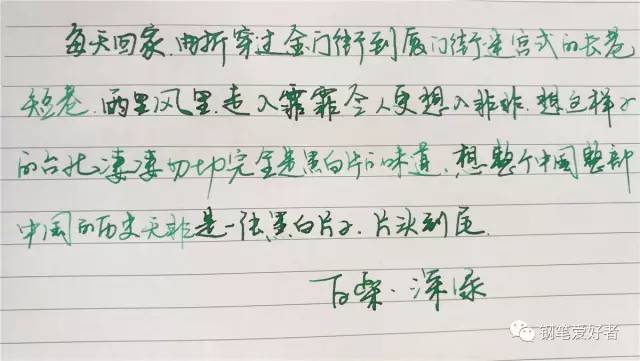 每天回家,曲折穿过金门街到厦门街迷宫式的长巷
短巷,雨里风里,走入霏霏令人更想入非非.想这样子
的台北凄凄切切完全是黑白片的味道,想整个中国整部
中国的历史无非是一张黑白片子.片头到尾.
百樂·深绿
钢笔爱好者